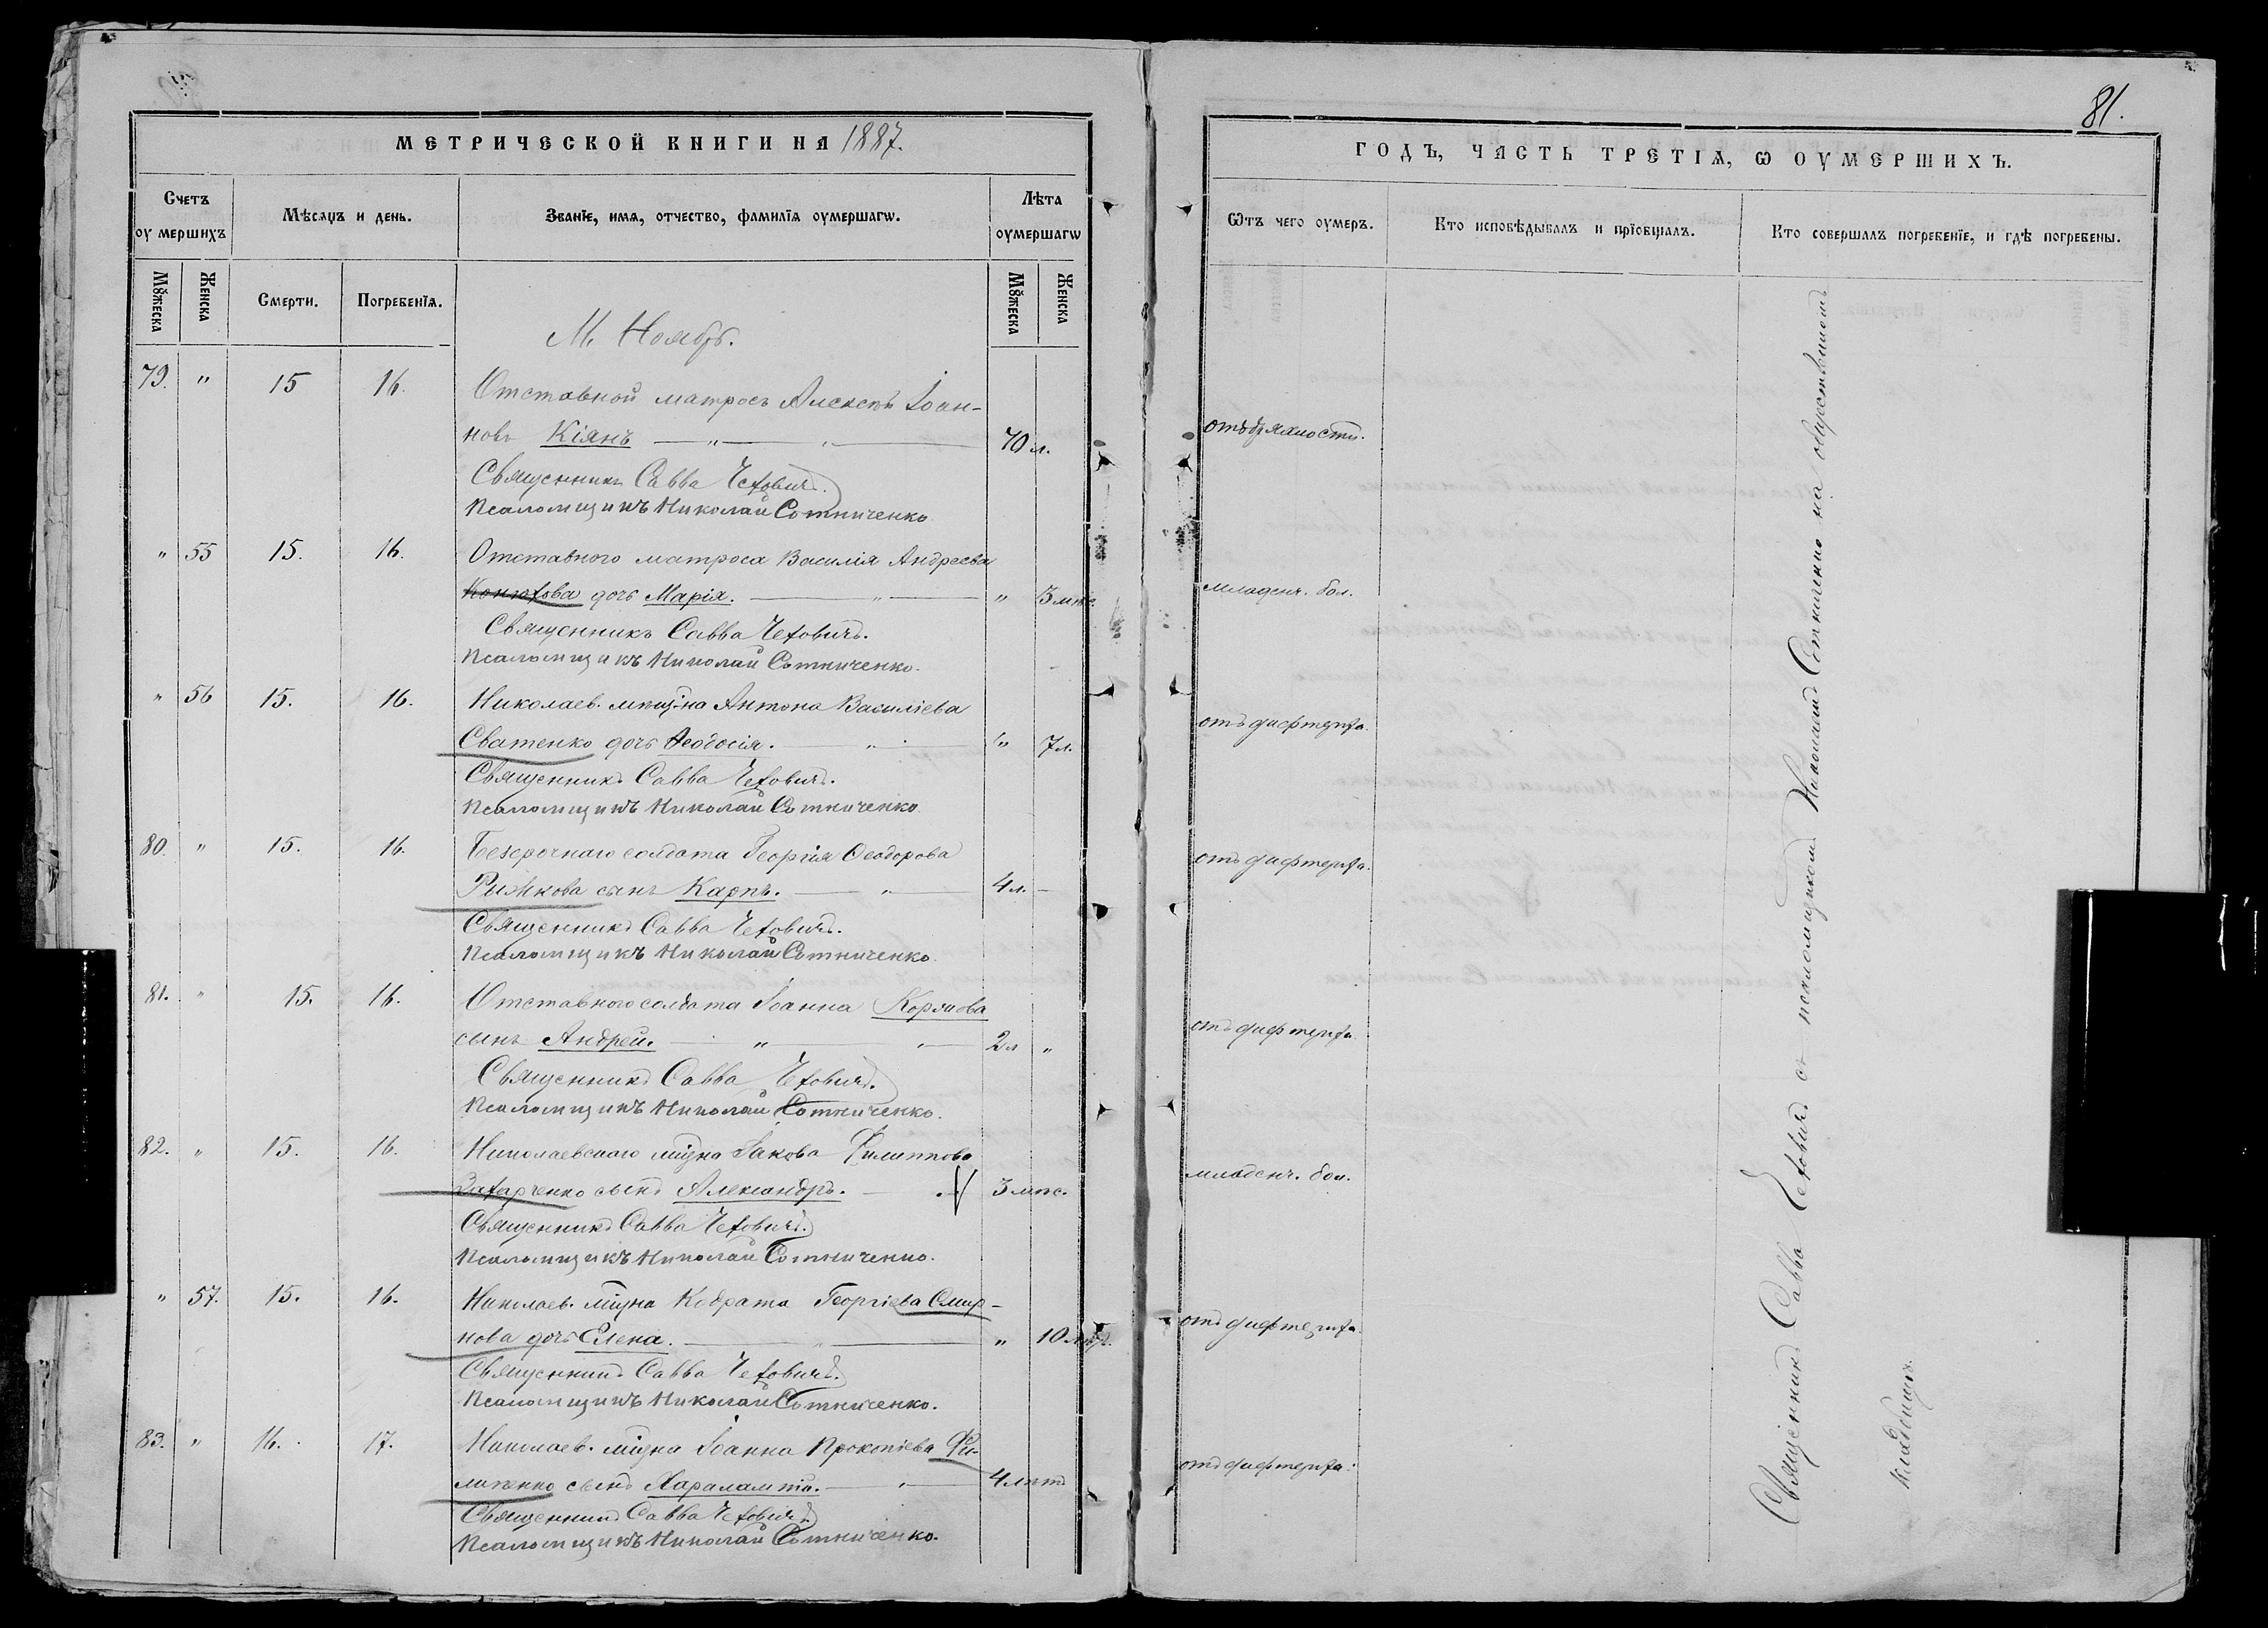 81.
МЕТРИЧЕСКОЙ КНИГИ НА 1887.
ГОДЪ, ЧАСТЬ ТРЕТІѦ, Ѡ ОУМЕРШИХЪ.
Счетъ оумершихъ
Мѣсяцъ и день.
Званїе, имѧ, отчество, фамилїѧ оумершагѡ.
Лѣта оумершагѡ
Ѿтъ чего оумеръ.
Кто исповѣдывалъ и прїобщалъ.
Кто совершалъ погребенїе, и гдѣ погребены.
Мꙋжеска
Женска
Смерти.
Погребенїѧ.
Мꙋжеска
Женска
М. Ноябр.
79. " 15 16. Отставной матросъ Алексѣй Іоан-
новъ Кіянъ 70 л. отъ дряхлости.
Священникъ Савва Чехович.
Псаломщикъ Николай Сотниченко
" 55 15. 16. Отставного матроса Василія Андреева
Конюхова дочь Марія. " 3 мѣс. младенч. бол.
Священникъ Савва Чеховичъ.
Псаломщикъ Николай Сотниченко.
" 56 15. 16. Николаев. мѣщ-на Антона Василіева
Сватенко дочь Ѳеодосія. " 7 л. отъ дифтерита.
Священникъ Савва Чеховичъ.
Псаломщикъ Николай Сотниченко
80. " 15. 16. Безсрочнаго солдата Георгія Ѳеодорова
Рижкова сынъ Карпъ. 4 л. отъ дифтерита.
Священникъ Савва Чеховичъ.
Псаломщикъ Николай Сотниченко.
81. " 15. 16. Отставного солдата Іоанна
сынъ Андрей. 2 л " отъ дифтерита.
Священникъ Савва Чеховичъ.
Псаломщикъ Николай Сотниченко.
82. " 15. 16. Николаевскаго мѣщна Іакова Филиппова
Захарченко сынъ Александръ. 3 мѣс. младенч. бол.
Священникъ Савва Чеховичъ.
Псаломщикъ Николай Сотниченко.
" 57. 15. 16. Николаев. мѣщна Кодрата Георгіева Смир-
нова дочь Елена. " 10 отъ дифтерита.
Священникъ Савва Чеховичъ.
Псаломщикъ Николай Сотниченко.
83. " 16. 17. Николаев. мѣщна Іоанна Прокопіева Фи-
сынъ Харалампій. 4 лѣтъ отъ дифтерита.
Священникъ Савва Чеховичъ
Псаломщикъ Николай Сотниченко.
Священникъ Савва Чеховичъ съ псаломщикомъ Николаемъ Сотниченко на общественномъ
кладбищѣ.